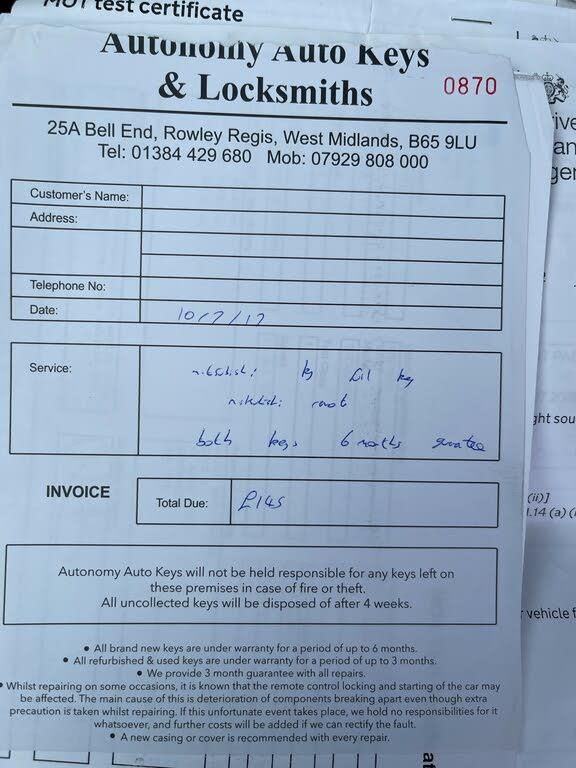 MOT test certificate
Autonomy Auto Keys
& Locksmiths
0870
25A Bell End, Rowley Regis, West Midlands, B65 9LU
Tel: 01384 429 680 Mob: 07929 808 000
Customer's Name:
Address:
Telephone No:
Date: 10/7/17
Service:
key
key
both keys 6 months
INVOICE
Total Due: £145
Autonomy Auto Keys will not be held responsible for any keys left on
these premises in case of fire or theft.
All uncollected keys will be disposed of after 4 weeks.
• All brand new keys are under warranty for a period of up to 6 months.
• All refurbished & used keys are under warranty for a period of up to 3 months.
• We provide 3 month guarantee with all repairs.
• Whilst repairing on some occasions, it is known that the remote control locking and starting of the car may
be affected. The main cause of this is deterioration of components breaking apart even though extra
precaution is taken whilst repairing. If this unfortunate event takes place, we hold no responsibilities for it
whatsoever, and further costs will be added if we can rectify the fault.
• A new casing or cover is recommended with every repair.
ght sou
(ii)]
.14 (a) (i
vehicle f